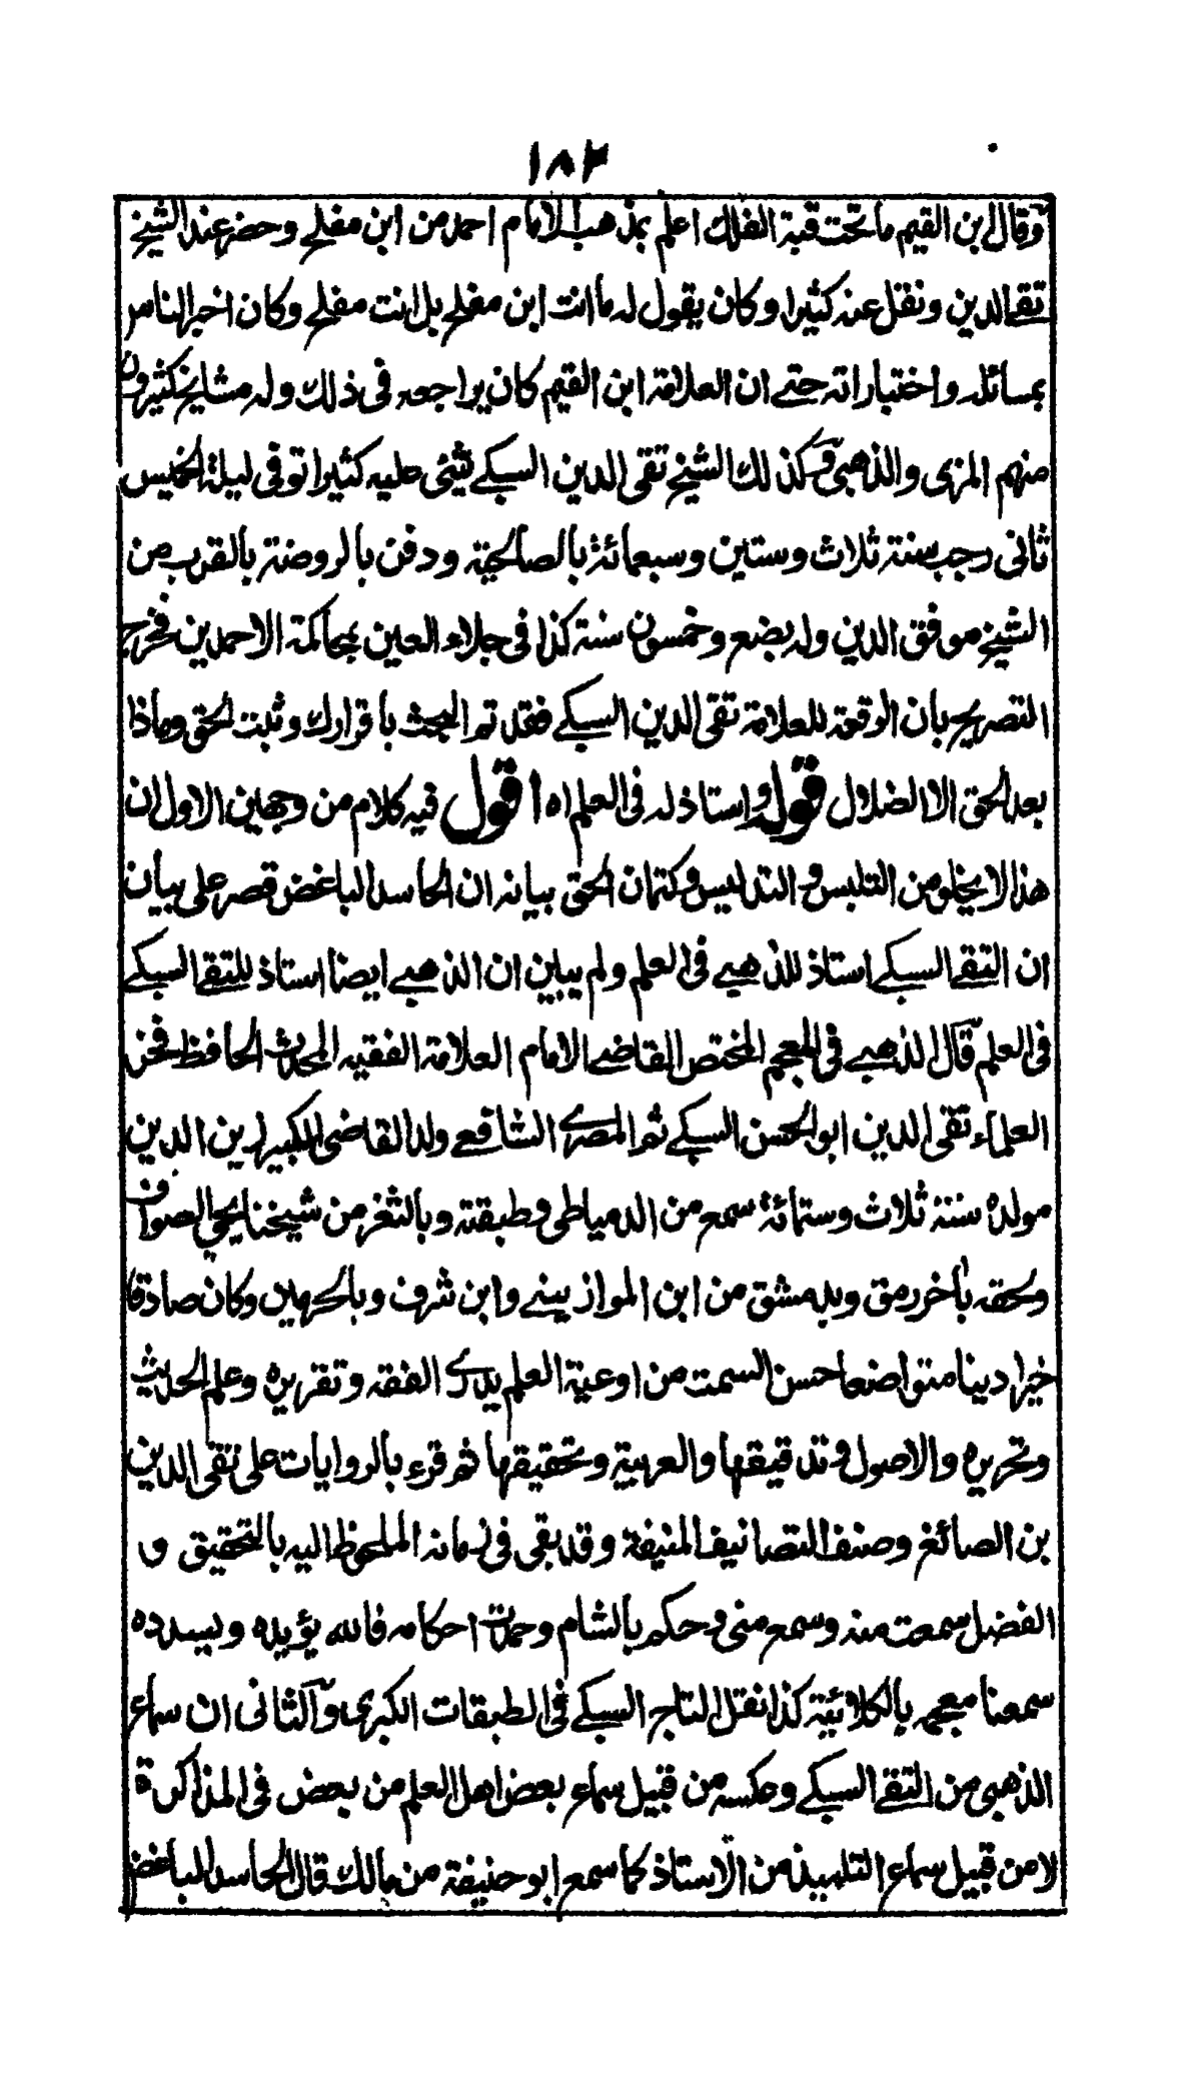 ١٨٢
وقال ابن القيم ما تحت قبة الفلك اعلم بمذهب الامام احمد من ابن مفلح وحضر عند الشيخ
تقي الدين ونقل عنه كثيرا وكان يقول له ما انت ابن مفلح بل انت مفلح وكان اخبر الناس
بمسائله واختياراته حتى ان العلامة ابن القيم كان يراجعه في ذلك وله مشايخ كثيرون
منهم المزى والذهبى وكذلك الشيخ تقى الدين السبكے يثنى عليه كثيرا توفى ليلة الخميس
ثانى رجب سنة ثلاث وستين وسبعمائة بالصالحية ودفن بالروضة بالقرب من
الشيخ موفق الدين وله بضع وخمسون سنة كذا فى جلاء العين بمحاكمة الاحمدين فخرج
التصريح بان الوقعة للعلامة تقى الدين السبكے فقد تم البحث باقرارك وثبت الحق وماذا
بعد الحق الا الضلال قوله واستاذ له فى العلم اه اقول فيه كلام من وجهين الاول ان
هذا لا يخلو من التلبيس والتدليس وكتمان الحق بيانه ان الحاسد الباغض قصر على بيان
ان التقے السبكے استاذ للذهبے فى العلم ولم يبين ان الذهبے ايضا استاذ للتقے السبكے
فى العلم قال الذهبے فى المعجم المختص القاضے الامام العلامة الفقيه المحدث الحافظ فخر
العلماء تقى الدين ابو الحسن السبكے ثم المصرے الشافعے ولد القاضى الكبير زين الدين
مولده سنة ثلاث وستمائة سمع من الدمياطى وطبقته وبالثغر من شيخنا يحيى الصواف
ولحقه بآخر رمق وبدمشق من ابن الموازينے وابن شرف وبالحرمين وكان صادقا
خيرا دينا متواضعا حسن السمت من اوعية العلم يدرے الفقه وتقريره وعلم الحديث
وتحريره والاصول وتدقيقها والعربية وتحقيقها ثم قرء بالروايات على تقى الدين
بن الصائغ وصنف التصانيف المنيفة وقد بقى فى زمانه الملحوظ اليه بالتحقيق و
الفضل سمعت منه وسمع منى وحكم بالشام وحمدت احكامه فالله يؤيده ويسدده
سمعنا معجمه بالكلائية كذا نقل التاج السبكے فى الطبقات الكبرى والثانى ان سماع
الذهبى من التقے السبكے وعكسه من قبيل سماع بعض اهل العلم من بعض فى المذاكرة
لا من قبيل سماع التلميذ من الاستاذ كما سمع ابو حنيفة من مالك قال الحاسد الباغض